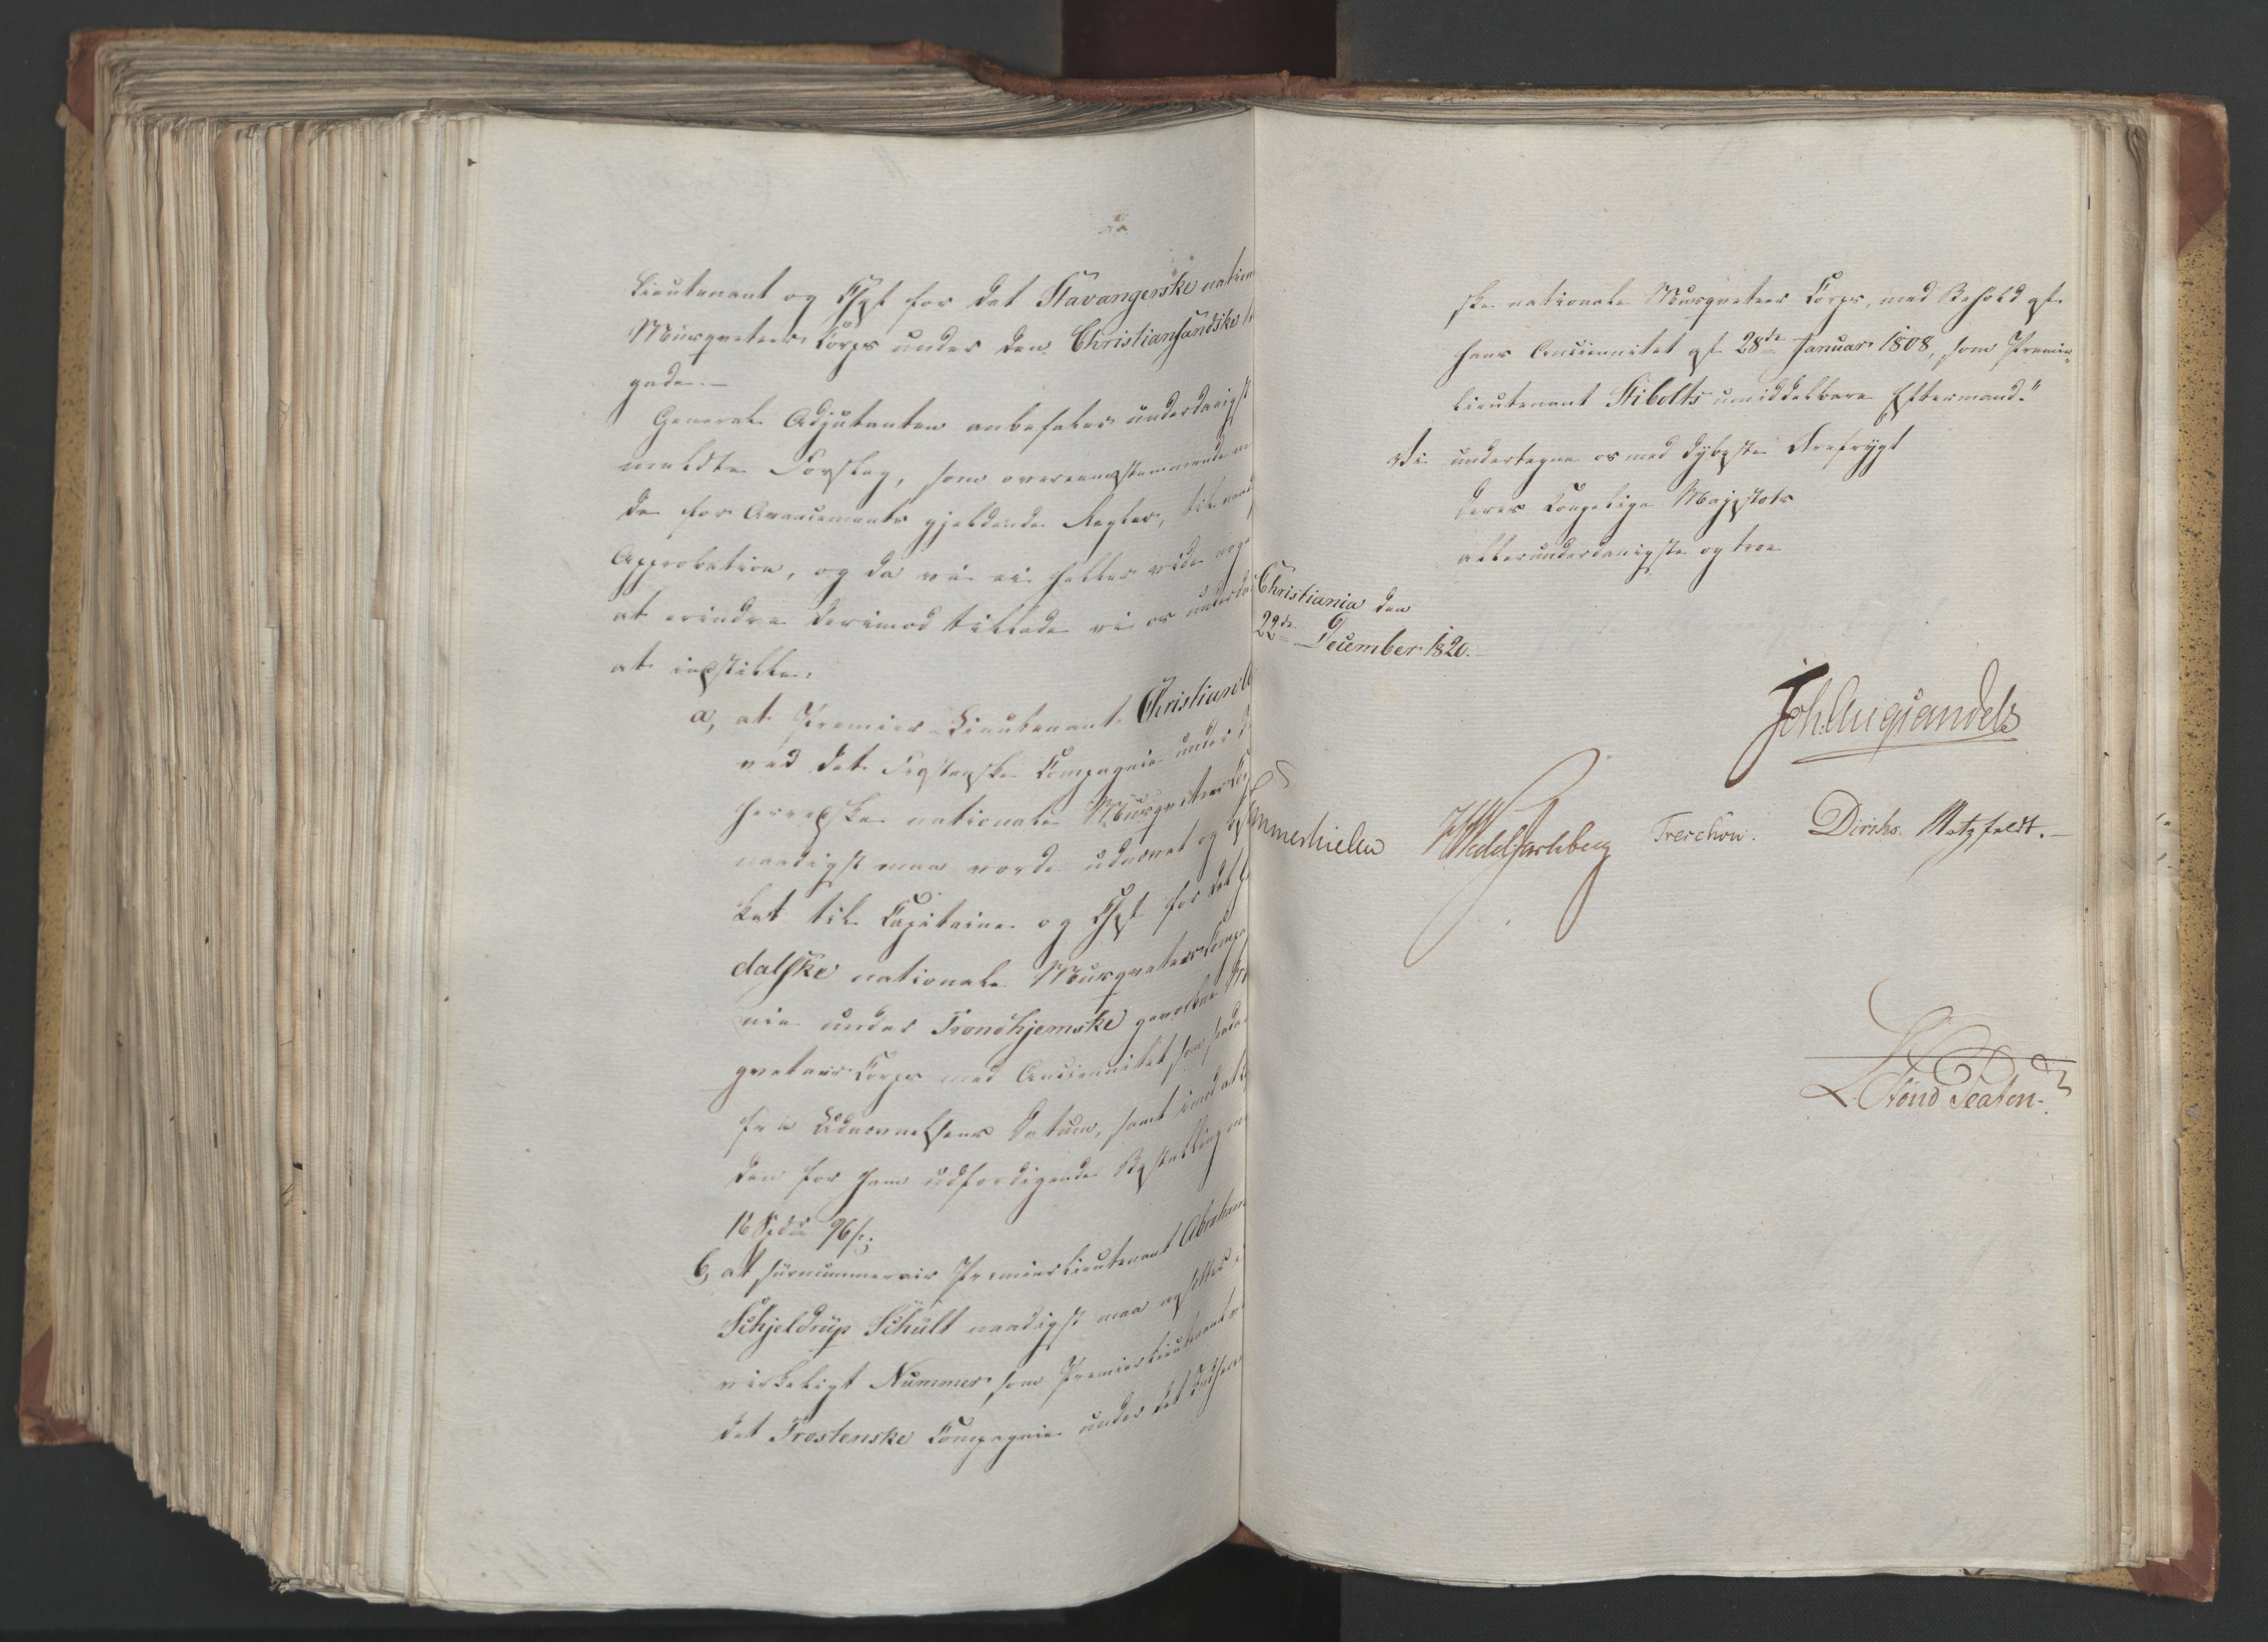 Lieutenant og Chef for det Stavangerske nation
Musqveteer Corps under den Christiansandske
gade. —
General Adjutanten anbefaler underdanigst
meldte Forslag, som overeensstemmende m
de for Avancements gjeldende Regler, til naad
Approbation, og da vi ei heller vide noge
at erindre derimod tillade vi os underda
at indstille:
a, at Premier-Lieutenant Christian
ved det Frostenske Compagnie under
herredske nationale Musqveteer Co
naadigst maa vorde udnævnt og be
ket til Capitaine og Chef for det
dalske nationale Musqveteer Compa
nie under Trondhjemske gevorbne
qveteer Corps med Anciennitet som saadan
fra Udnævnelsens Datum, samt imod at
den for ham udfærdigende Bestalling
16 Spdr 96 s;
b, at surnummerair Premier Lieutenant Abraham
Schjeldrup Schült naadigst maa ansættes i
virkeligt Nummer som Premier Lieutenant
det Frostenske Compagnie under det Indher
ske nationale Musqveteer Corps, med Behold af
hans Anciennitet af 28de Januar 1808, som Premier
Lieutenant Stibolts umiddelbare Eftermand."
Vi undertegne os med dybeste Ærefrygt
Deres Kongelige Majestæts
allerunderdanigste og troe
Christiania den
22de December 1820.
Joh. Aug Sandels
Sommerhielm HWedelJarlsberg Treschow. Diriks. Motzfeldt. —